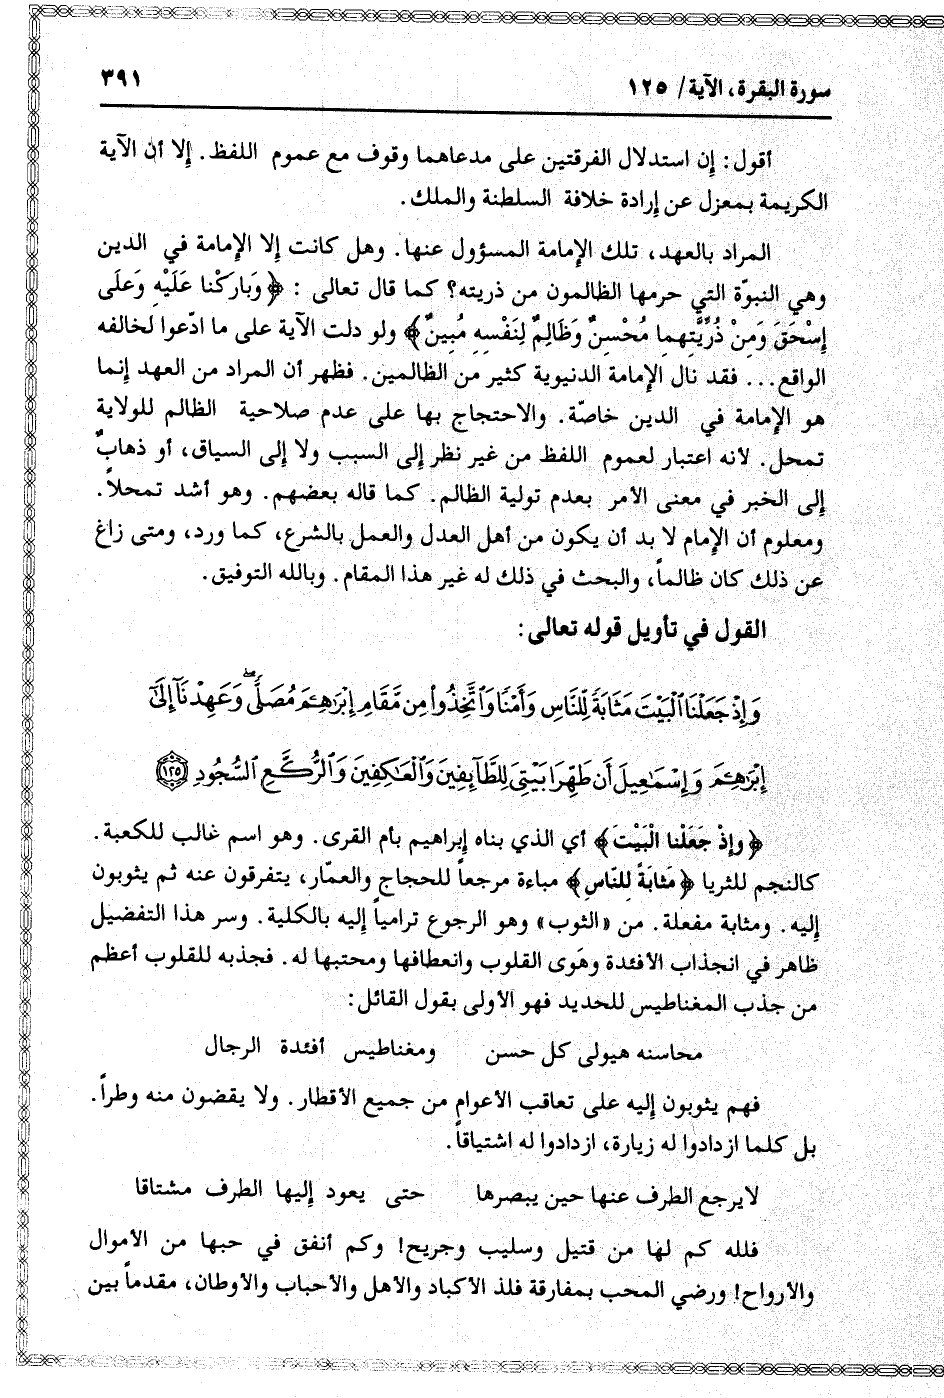 سورة البقرة، الآية/ ١٢٥
٣٩١
أقول: إن استدلال الفرقتين على مدعاهما وقوف مع عموم اللفظ. إلا أن الآية
الكريمة بمعزل عن إرادة خلافة السلطنة والملك.
المراد بالعهد، تلك الإمامة المسؤول عنها. وهل كانت إلا الإمامة في الدين
وهي النبوّة التي حرمها الظالمون من ذريته؟ كما قال تعالى : ﴿وَبارَكْنا عَلَيْهِ وَعَلَى
إِسْحَقَ وَمِنْ ذُرِّيَّتِهِما مُحْسِنٌ وَظَالِمٌ لِنَفْسِهِ مُبِينٌ﴾ ولو دلت الآية على ما ادّعوا لخالفه
الواقع... فقد نال الإمامة الدنيوية كثير من الظالمين. فظهر أن المراد من العهد إنما
هو الإمامة في الدين خاصّة. والاحتجاج بها على عدم صلاحية الظالم للولاية
تمحل. لأنه اعتبار لعموم اللفظ من غير نظر إلى السبب ولا إلى السياق، أو ذهابٌ
إلى الخبر في معنى الأمر بعدم تولية الظالم. كما قاله بعضهم. وهو أشد تمحلاً.
ومعلوم أن الإمام لا بد أن يكون من أهل العدل والعمل بالشرع، كما ورد، ومتى زاغ
عن ذلك كان ظالماً، والبحث في ذلك له غير هذا المقام. وبالله التوفيق.
القول في تأويل قوله تعالى:
وَإِذْ جَعَلْنَا ٱلْبَيْتَ مَثَابَةً لِّلنَّاسِ وَأَمْنًا وَٱتَّخِذُوا۟ مِن مَّقَامِ إِبْرَٰهِـۧمَ مُصَلًّى ۖ وَعَهِدْنَآ إِلَىٰٓ
إِبْرَٰهِـۧمَ وَإِسْمَٰعِيلَ أَن طَهِّرَا بَيْتِىَ لِلطَّآئِفِينَ وَٱلْعَٰكِفِينَ وَٱلرُّكَّعِ ٱلسُّجُودِ ١٢٥
﴿وإِذْ جَعَلْنا الْبَيْتَ﴾ أي الذي بناه إبراهيم بأم القرى. وهو اسم غالب للكعبة.
كالنجم للثريا ﴿مَثابَةً للنَاسِ﴾ مباءة مرجعاً للحجاج والعمّار، يتفرقون عنه ثم يثوبون
إليه. ومثابة مفعلة. من «الثوب» وهو الرجوع ترامياً إليه بالكلية. وسر هذا التفضيل
ظاهر في انجذاب الأفئدة وهَوى القلوب وانعطافها ومحتبها له. فجذبه للقلوب أعظم
من جذب المغناطيس للحديد فهو الأولى بقول القائل:
محاسنه هيولى كل حسن ومغناطيس أفئدة الرجال
فهم يثوبون إليه على تعاقب الأعوام من جميع الأقطار. ولا يقضون منه وطراً.
بل كلما ازدادوا له زيارة، ازدادوا له اشتياقاً.
لا يرجع الطرف عنها حين يبصرها حتى يعود إليها الطرف مشتاقا
فلله كم لها من قتيل وسليب وجريح! وكم أنفق في حبها من الأموال
والأرواح! ورضي المحب بمفارقة فلذ الأكباد والأهل والأحباب والأوطان، مقدماً بين